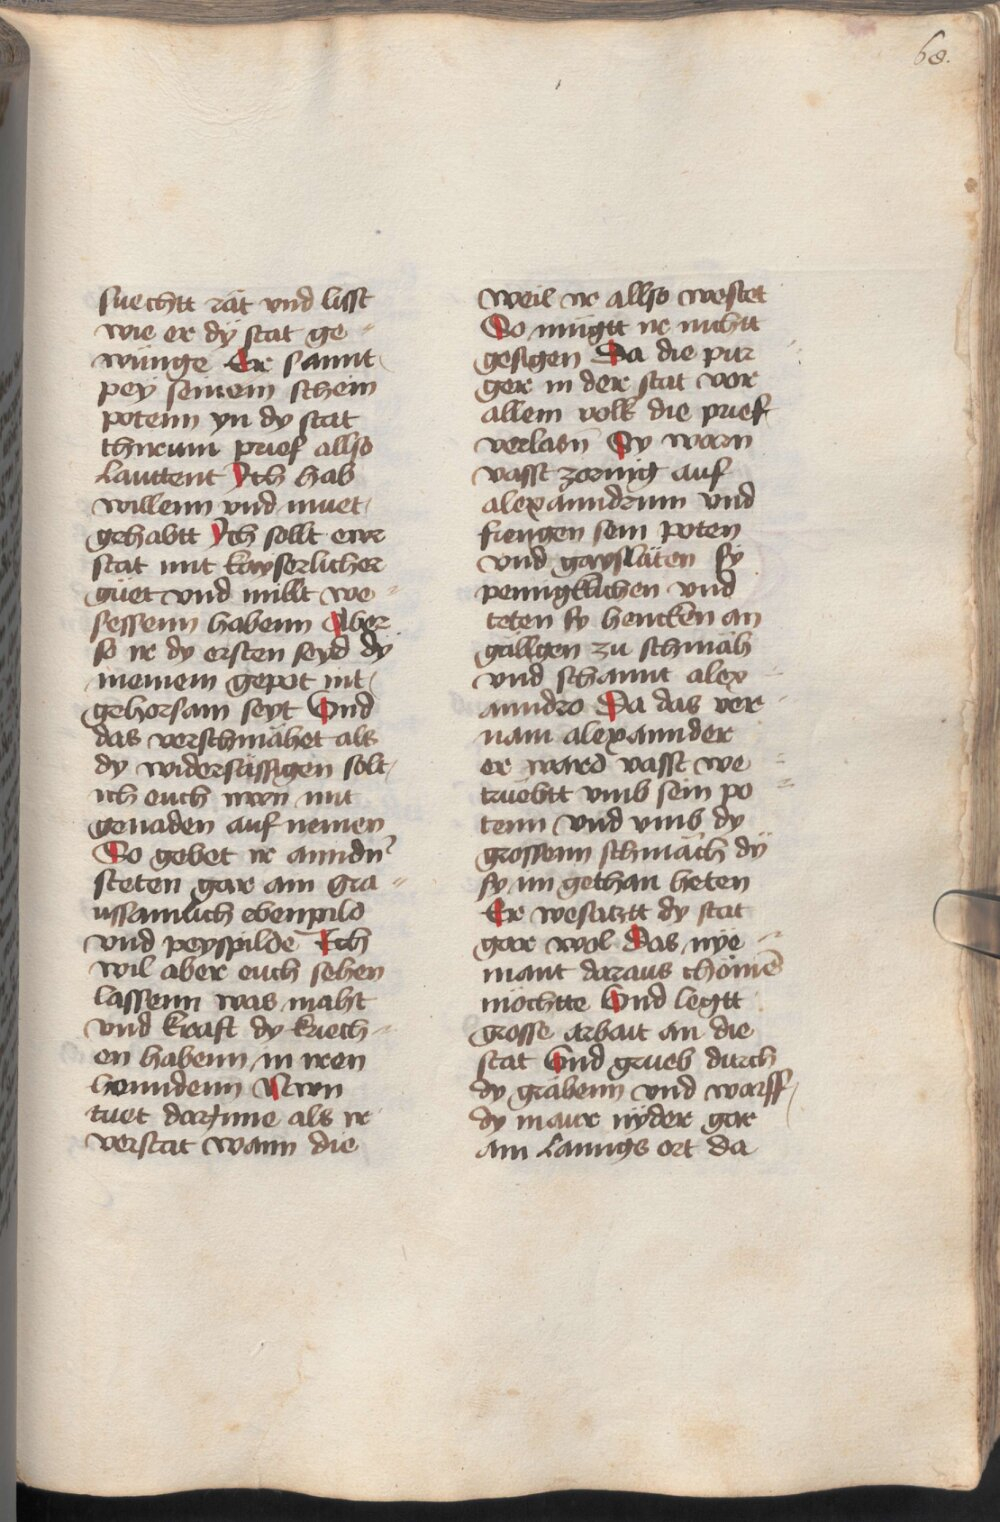 68.
suechtt rät vnd lisst
wie er dÿ stat ge=
wünge Er sannt
peÿ seinem schein
potenn yn dy stat
thirum prief allso
lauttent Ych hab
willenn vnd muet
gehabtt Ych sollt ewr
stat mit kayserlicher
güet vnd millt we=
sessenn habenn Aber
so ir dy ersten seyd dy
meinem gepot nit
gehorsam seyt Vnd
das verschmähet als
dy widersässigen solt
ich euch nun mit
genaden auf nemen
So gebet ir anndn
steten gar ain gra=
ussamlich ebenpild
vnd peyspilde Ich
wil aber euch sehen
lassenn was maht
vnd kraft dy kriech=
en habenn in iren
henndenn Nwn
tuet darInne als ir
verstat wann die
weil ir allso westet
So mügtt ir nichtt
gesigen Da die pur
ger in der stat vor
allem volk die prief
verlasn Sy warn
vasst zornig auf
alexanndrum vnd
fiengen sein poten
vnd gayslaten sy
peinigklichen vnd
teten sy hencken an
gällgen zu schmäh
vnd schannt alex
anndro Da das ver
nam alexannder
er ward vasst we
trüebtt vmb sein po
tenn vnd vmb dy
grossenn schmäch dÿ
sy im gethan heten
Er wesatztt dy stat
gar wol Das nye
mant daraus chömē
möchtte Vnd legtt
grosse arbait an die
stat Vnd grueb durch
dy gräbenn vnd warff
dy maur nÿder gar
ain lanngs ort da